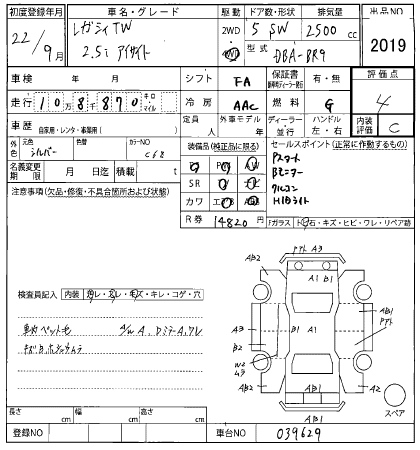 初度登録年月 車名・グレード 駆動 ドア数・形状 排気量 出品NO
22/9月 レガシィTW 2WD 5 SW 2500cc
2.5i アイサイト 4WD 型式 DBA-BR9 2019
車検 年 月 シフト FA 保証書 有・無 評価点
走行 10万8千870 キロ・マイル 冷房 AAC 燃料 G 4
車歴 自家用・レンタ・事業用( ) 定員 人 外車モデル 年 ディーラー・並行 ハンドル 左・右 内装評価 C
外色 元色 シルバー 色替 カラーNO C68 装備品(純正品に限る) セールスポイント(正常に作動するもの)
名義変更期限 月 日迄 積載量 t PS PW AW
SR 革 TV
カワ エアB ナビ
R券 4820円
Pスタート
Bモニター
クルコン
HIDライト
注意事項(欠品・修復・不具合箇所および状態)
Fガラス トビ石・キズ・ヒビ・ワレ・リペア跡
検査員記入 内装 スレ・コレ・モス・キレ・コゲ・穴
A3
AB2 A1 B1 AB2
A3 B1 A1 AB1
B2
W2
AB2 AB1 A2
AB1
スペア
長さ cm 幅 cm 高さ cm
登録NO 車台NO 039629